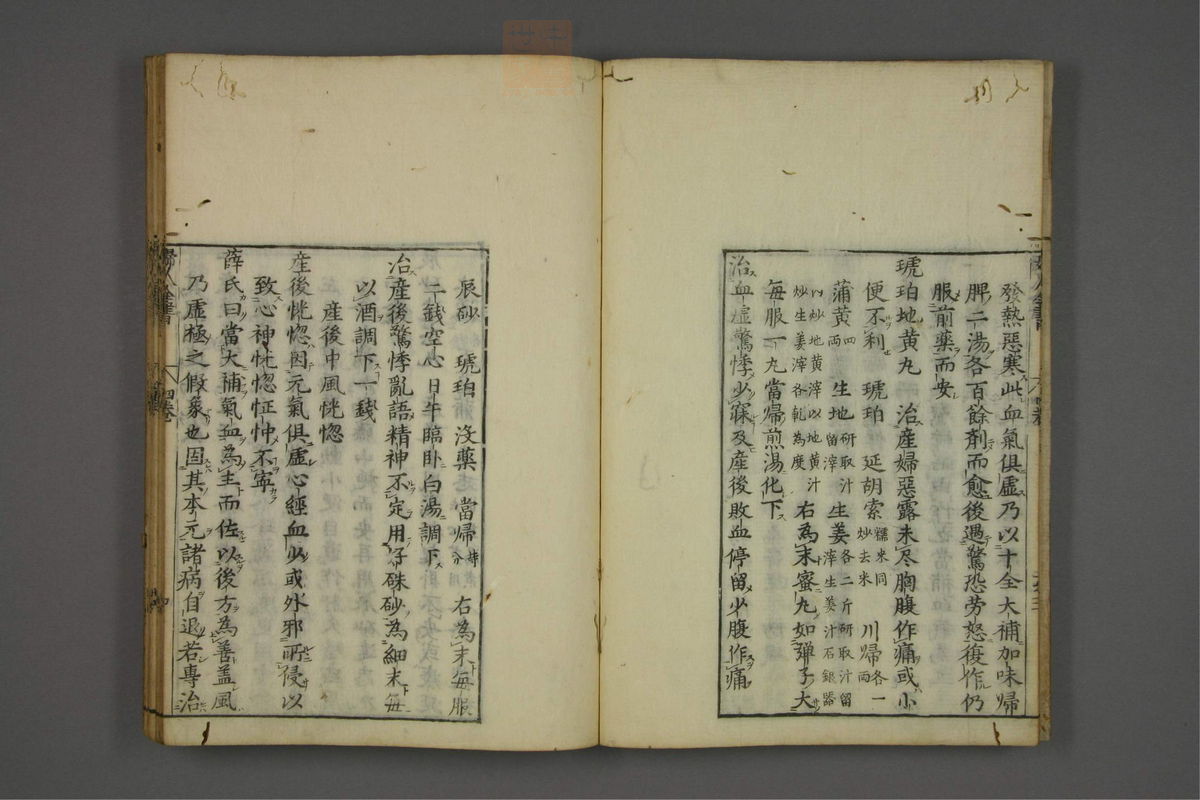 發熱惡寒此血氣俱虛乃以十全大補加味歸
脾二湯各百餘劑而愈後過驚恐勞怒復作仍
服前藥而安
琥珀地黃丸　治産婦惡露未尽胸腹作痛或小
便不利　琥珀　延胡索糯米同炒去米　川歸各一兩
蒲黄四兩　生地研取汁留滓　生姜各二斤研取汁留滓生姜汁石銀器
内炒地黄滓以地黄汁炒生姜滓各乾為度　右為末蜜丸如弾子大
毎服一丸當帰煎湯化下
治血虛驚悸少寐及産後敗血停留少腹作痛
辰砂　琥珀　没藥　當歸　右為末毎服
二錢空心日午臨卧白湯調下
治産後驚悸亂語精神不定用好硃砂為細末毎
以酒調下一錢
産後中風恍惚
産後恍惚因元氣俱虛心經血少或外邪所侵以
致心神恍惚怔忡不寧
薛氏曰當大補氣血為主而佐以後方為善盖風
乃虛極之假象也固其本元諸病自退若專治
四卷